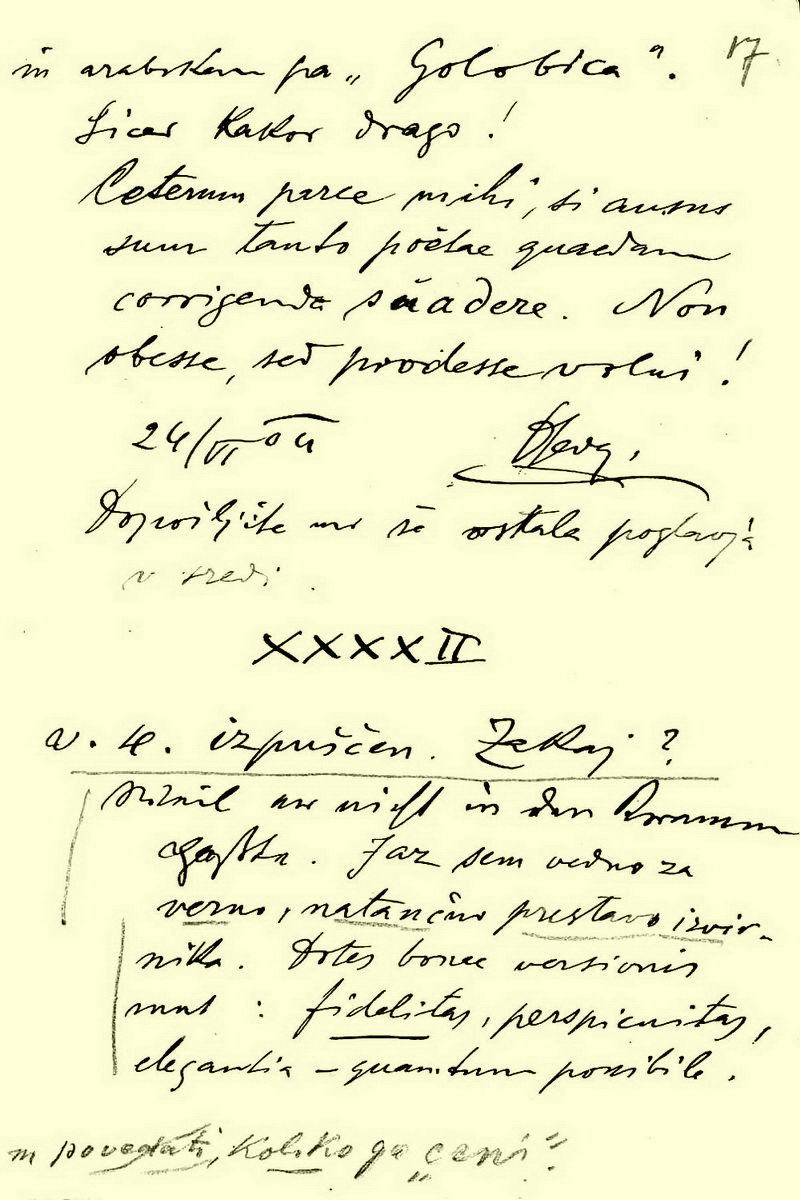 17
in arabskem pa „Golobica".
Sicer kakor drago!
Ceterum parce mihi, si ausus
sum tanto poëtae quaedam
corrigenda suadere. Non
obesse, sed prodesse volui!
24/VI
Dopošljite mi še ostala poglavja
v sredi.
XXXXII
v. 4. izpuščen. Zakaj?
mir nicht in den
Jaz sem vedno za
verno, natančno prestavo izvir-
nika. Dotes bonae versionis
sunt: fidelitas, perspicuitas,
elegantia – quantum possibile.
in povedati, koliko ga „ceni"